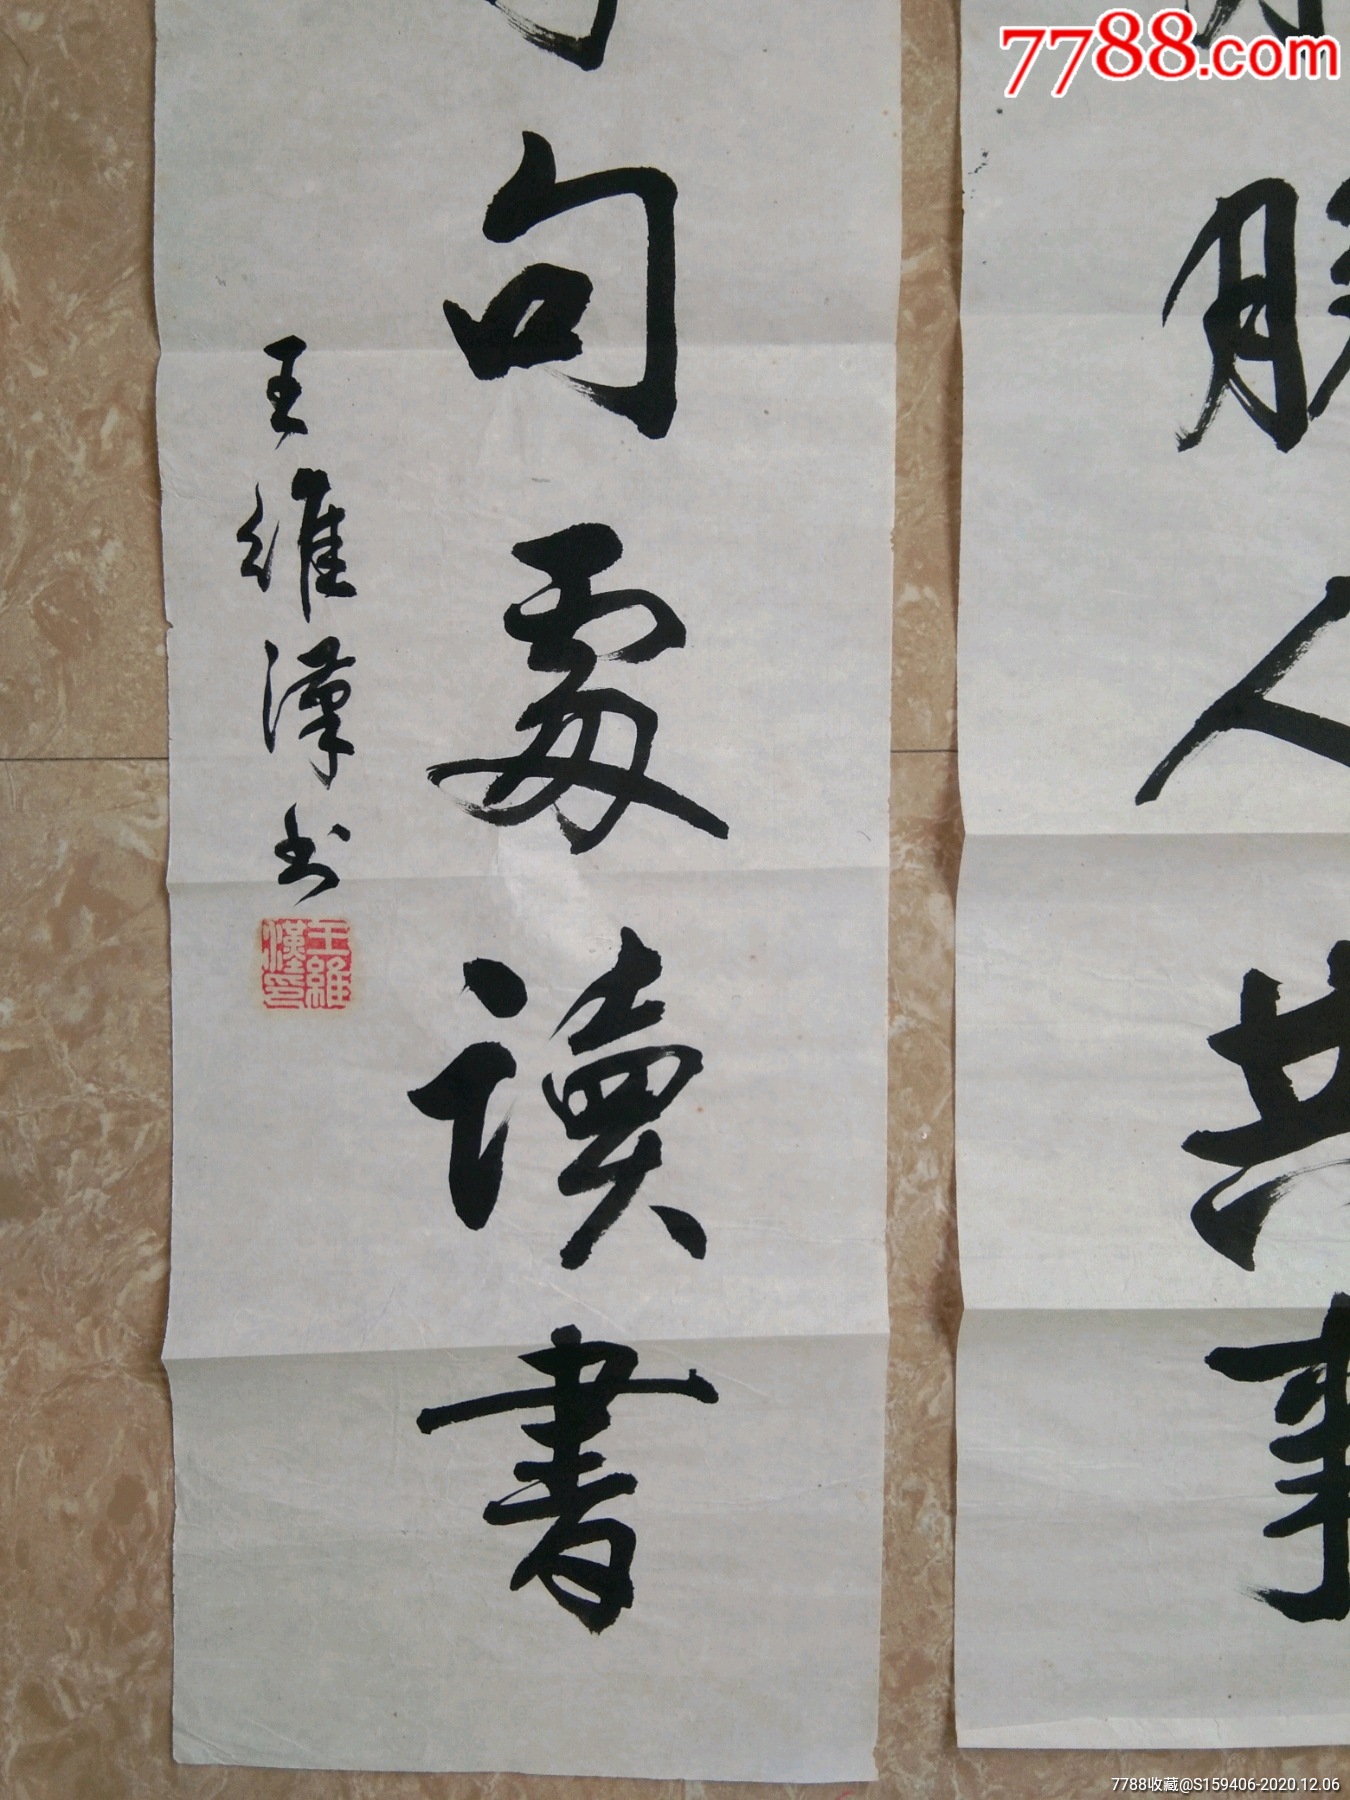 7788.com
人共事
句處讀書
王維漢书
王維漢印
7788收藏@S159406-2020.12.06